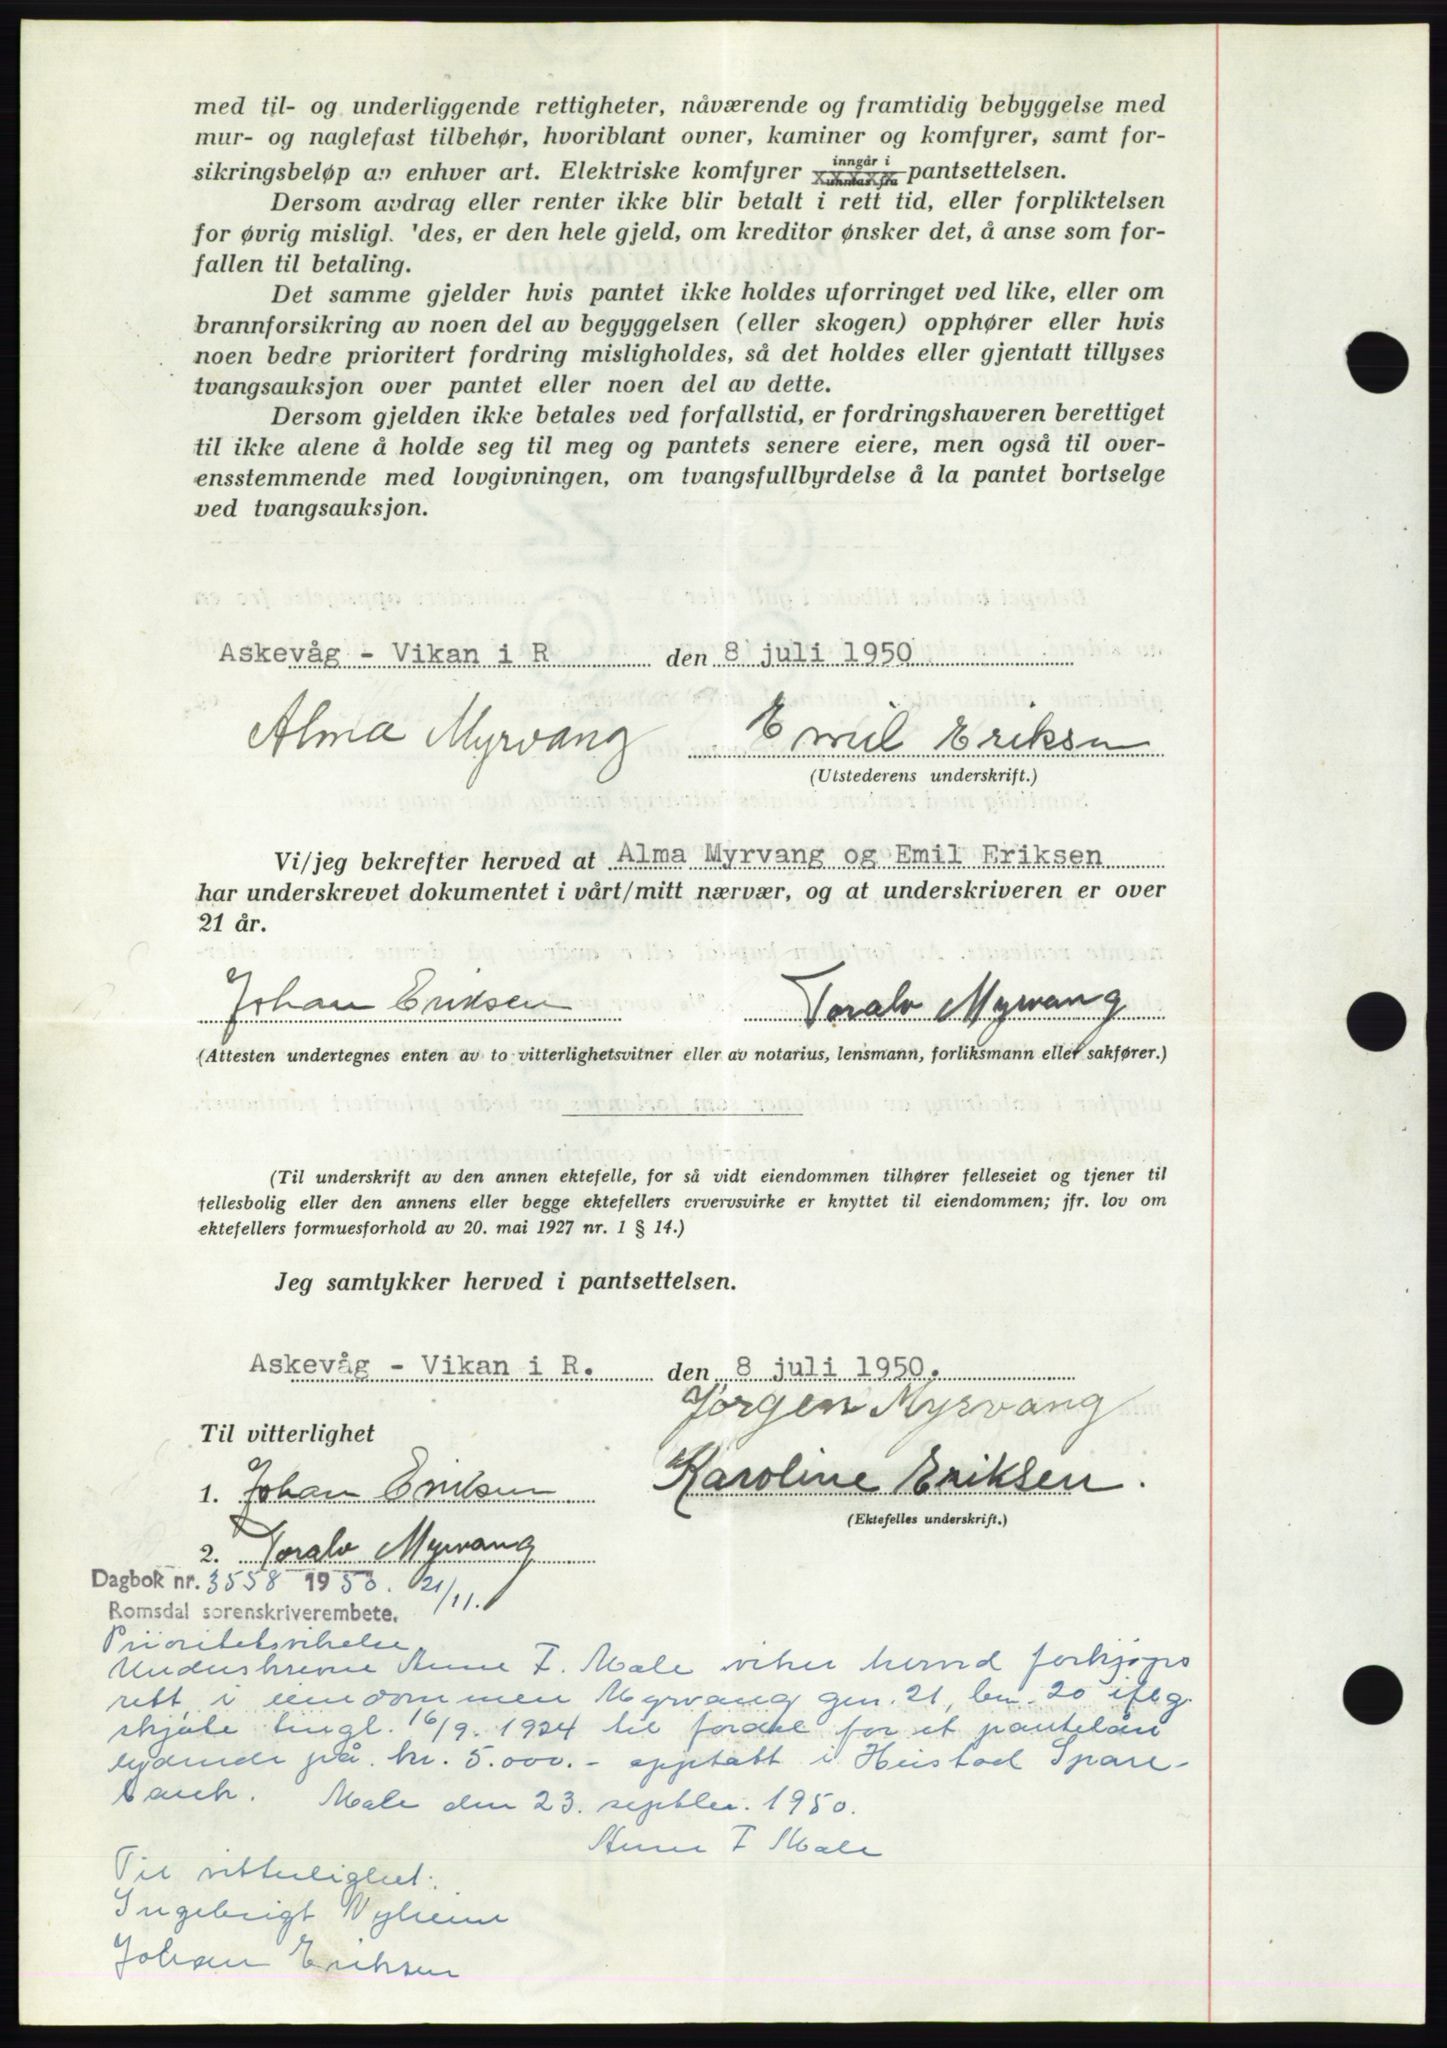 med til- og underliggende rettigheter, nåværende og framtidig bebyggelse med
mur- og naglefast tilbehør, hvoriblant ovner, kaminer og komfyrer, samt for-
sikringsbeløp av enhver art. Elektriske komfyrer inngår i pantsettelsen.
Dersom avdrag eller renter ikke blir betalt i rett tid, eller forpliktelsen
for øvrig misligl. 'des, er den hele gjeld, om kreditor ønsker det, å anse som for-
fallen til betaling.
Det samme gjelder hvis pantet ikke holdes uforringet ved like, eller om
brannforsikring av noen del av begyggelsen (eller skogen) opphører eller hvis
noen bedre prioritert fordring misligholdes, så det holdes eller gjentatt tillyses
tvangsauksjon over pantet eller noen del av dette.
Dersom gjelden ikke betales ved forfallstid, er fordringshaveren berettiget
til ikke alene å holde seg til meg og pantets senere eiere, men også til over-
ensstemmende med lovgivningen, om tvangsfullbyrdelse å la pantet bortselge
ved tvangsauksjon.
Askevåg - Vikan i R den 8 juli 1950
Alma Myrvang Emil Eriksen
(Utstederens underskrift.)
Vi/jeg bekrefter herved at Alma Myrvang og Emil Eriksen
har underskrevet dokumentet i vårt/mitt nærvær, og at underskriveren er over
21 år.
Johan Eriksen Toralv Myrvang
(Attesten undertegnes enten av to vitterlighetsvitner eller av notarius, lensmann, forliksmann eller sakfører.)
(Til underskrift av den annen ektefelle, for så vidt eiendommen tilhører felleseiet og tjener til
fellesbolig eller den annens eller begge ektefellers ervervsvirke er knyttet til eiendommen; jfr. lov om
ektefellers formuesforhold av 20. mai 1927 nr. 1 § 14.)
Jeg samtykker herved i pantsettelsen.
Askevåg - Vikan i R. den 8 juli 1950.
Jørgen Myrvang
Til vitterlighet
Karoline Eriksen.
1. Johan Eriksen
(Ektefelles underskrift.)
2. Toralv Myrvang
Dagbok nr. 3558 1950. 21/11.
Romsdal sorenskriverembete.
Prioritetsvikelse
Underskrevne Anne T. Male viker herved forkjøps
rett i eiendommen Myrvang gnr. 21, bnr. 20 iflg.
skjøte tingl. 16/9. 1924 til fordel for et pantelån
lydende på kr. 5.000.- opptatt i Heistad Spare-
bank. Male den 23. septbr. 1950.
Anne T Male
Til vitterlighet:
Ingebrigt Nyheim
Johan Eriksen